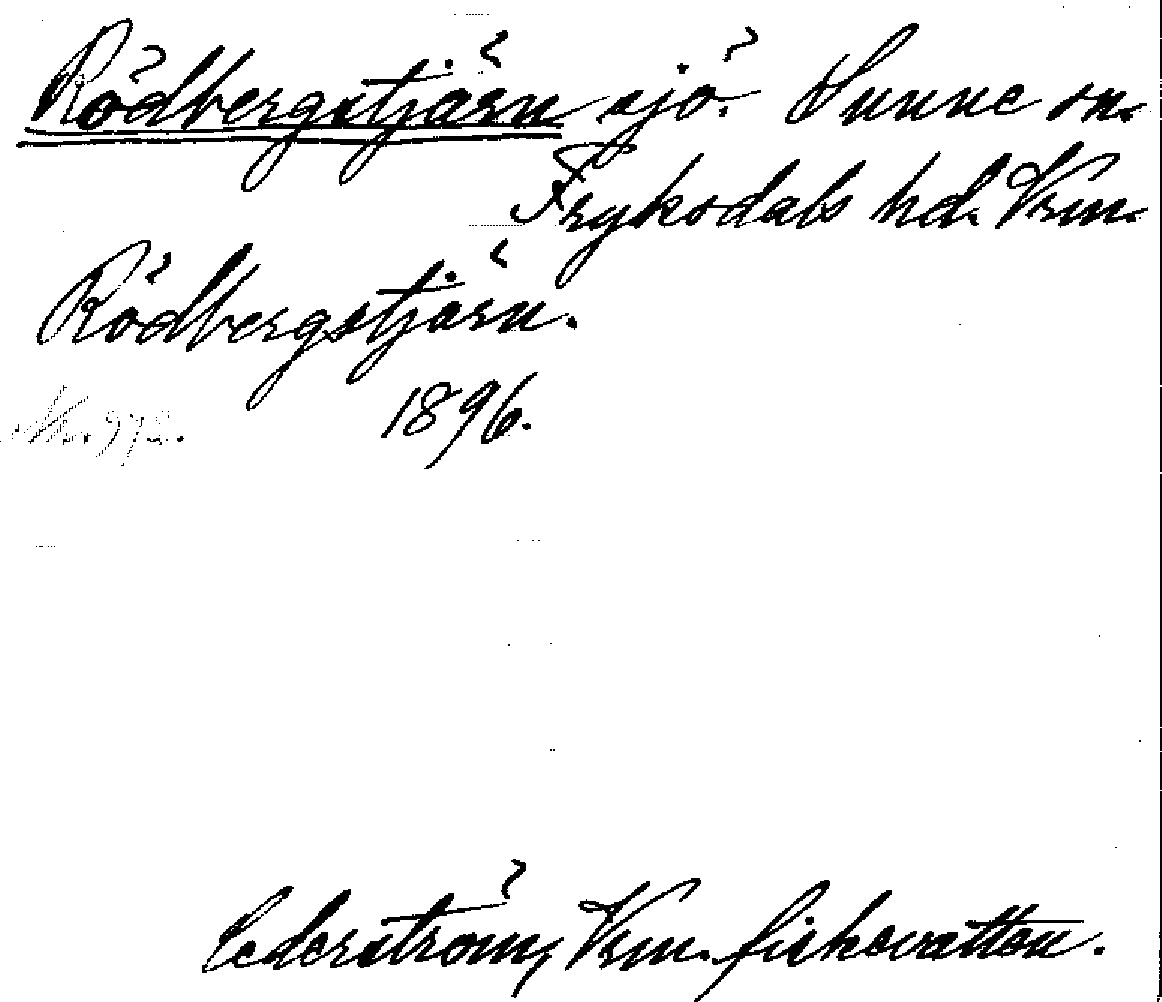 Rödbergstjärn sjö. Sunne sn.
Fryksdals hd. Vrm.
Rödbergstjärn.
1896.
Nr. 972.
Cederström, Vrm. fiskevatten.